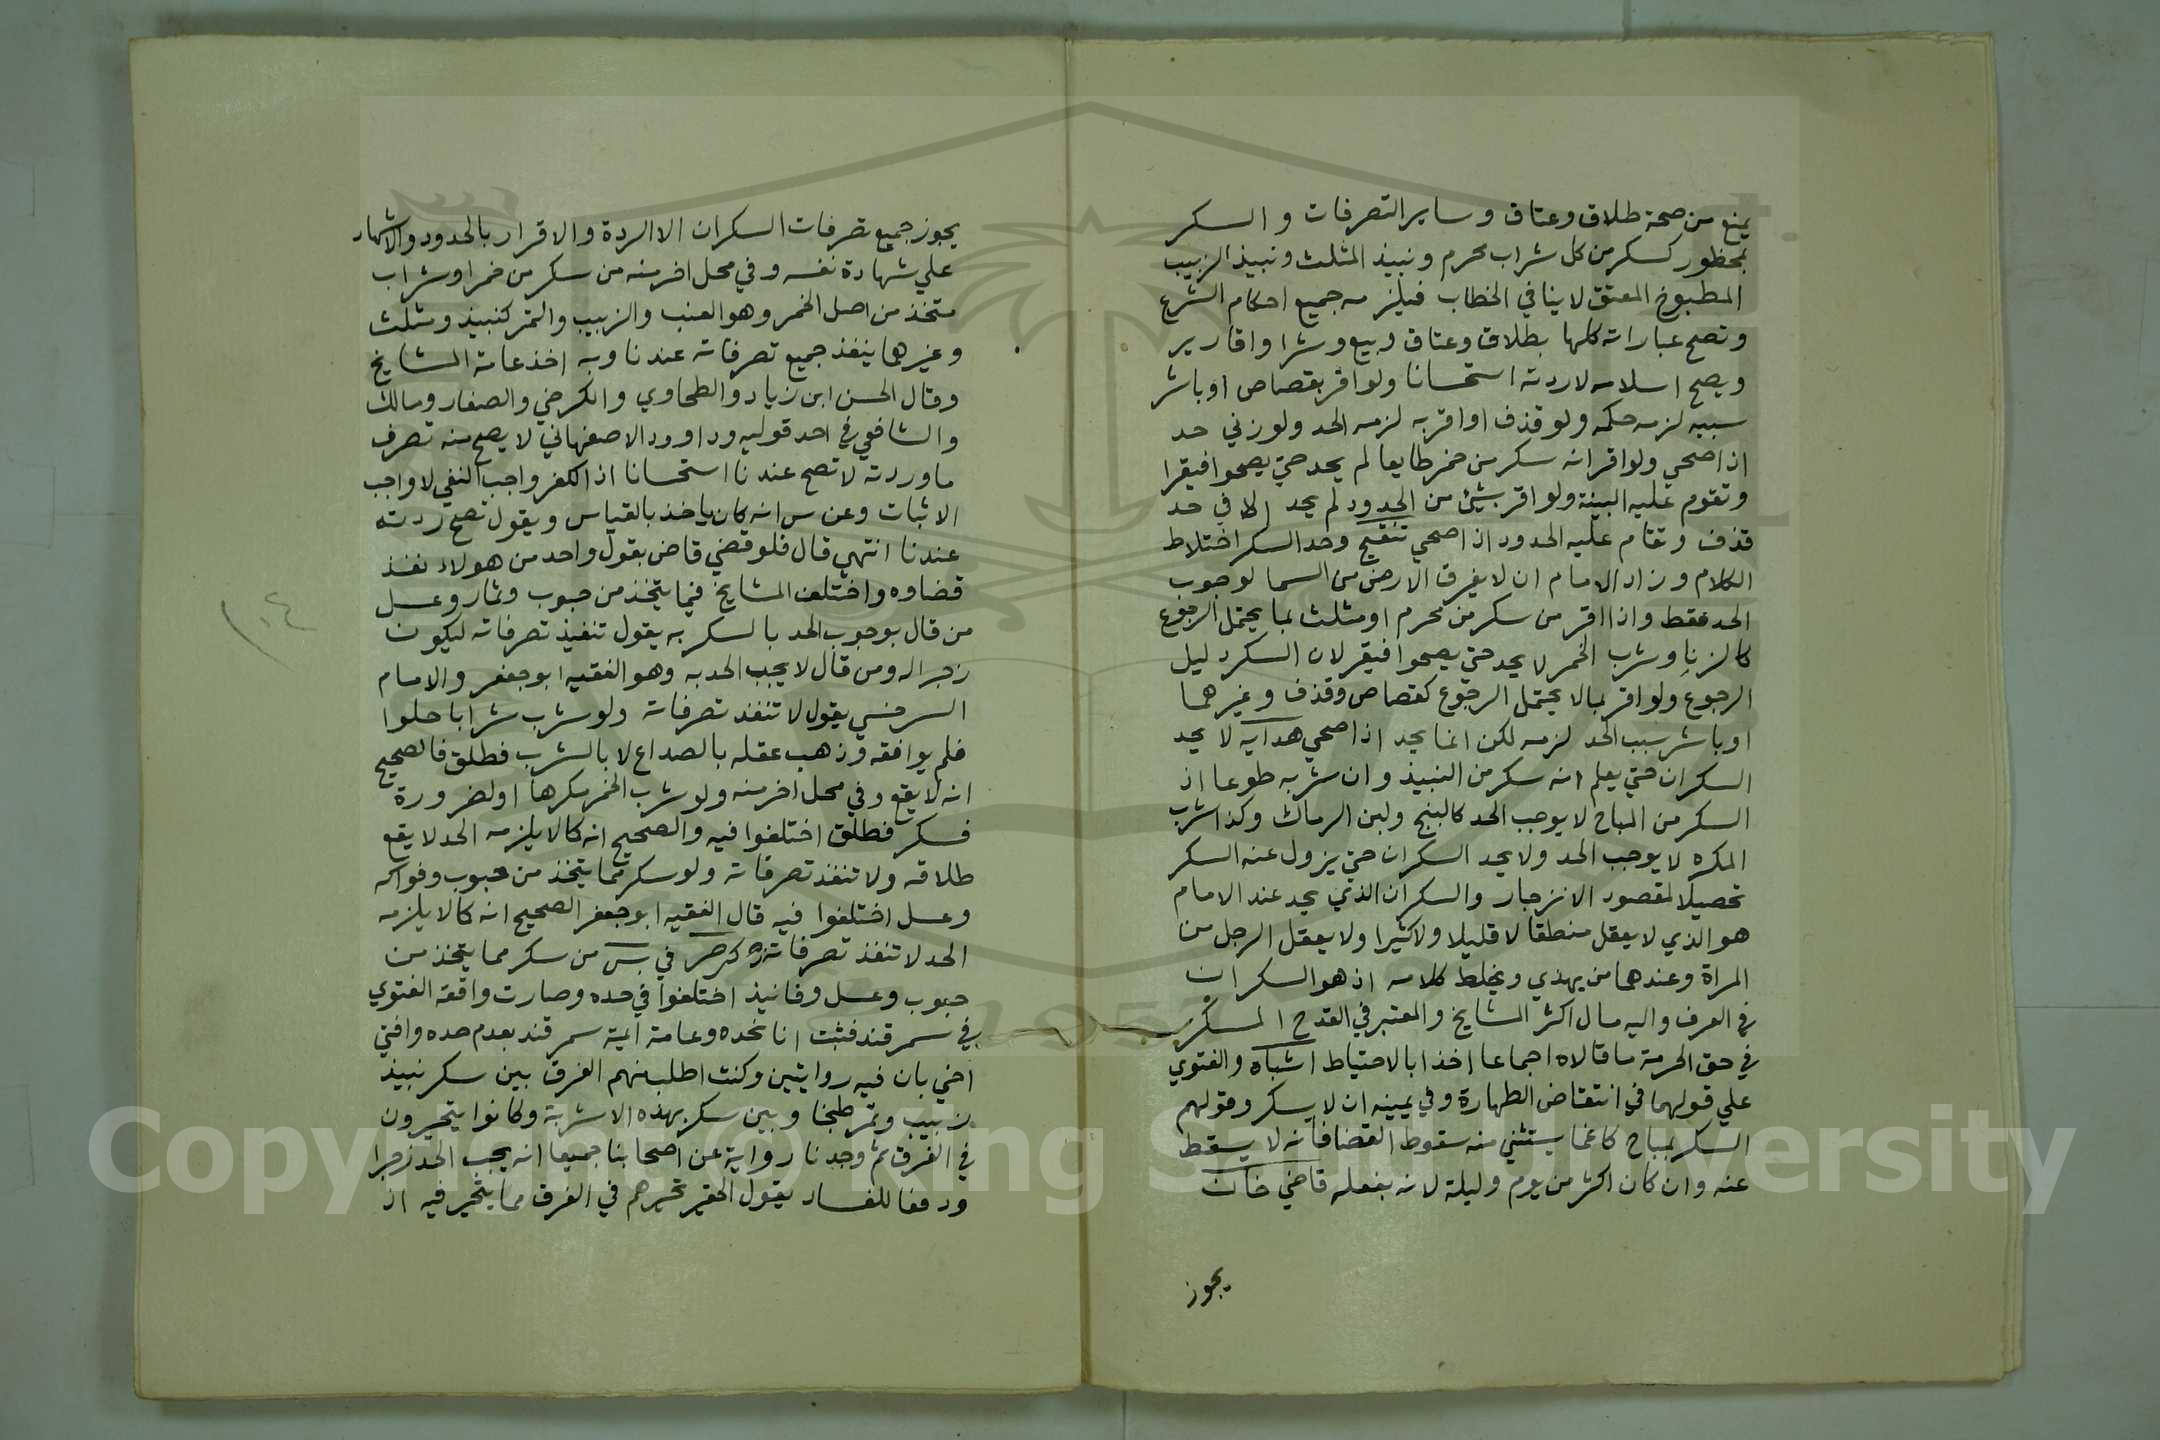 يمنع من صحة طلاق وعتاق وساير التصرفات والسكر
بمحظور كسكر من كل شراب محرم ونبيذ المثلث ونبيذ الزبيب
المطبوخ المعتق لا ينافي الخطاب فيلزمه جميع احكام الشرع
وتصح عباراته كلها بطلاق وعتاق وبيع وشرا واقارير
ويصح اسلامه لا ردته استحسانا ولو اقر بقصاص او باشر
سببه لزمه حكمه ولو قذف او اقر به لزمه الحد ولو زني حد
اذا صحي ولو اقر انه سكر من خمر طايعا لم يحد حتي يصحوا فيقرا
وتقوم عليه البينة ولو اقر بشئ من الحدود لم يحد الا في حد
قذف وتقام عليه الحدود اذا صحي تنقيح وحد السكر اختلاط
الكلام وزاد الامام ان لا يفرق الارض من السما لوجوب
الحد فقط واذا اقر من سكر من محرم او مثلث بما يحتمل الرجوع
كالزنا وشرب الخمر لا يحد حتي يصحوا فيقر لان السكر دليل
الرجوع ولو اقر بما لا يحتمل الرجوع كقصاص وقذف وغيرهما
او باشر سبب الحد لزمه لكن انما يحد اذا صحي هداية لا يحد
السكران حتي يعلم انه سكر من النبيذ وان شربه طوعا اذ
السكر من المباح لا يوجب الحد كالبنج ولبن الرماك وكذا شرب
المكره لا يوجب الحد ولا يحد السكران حتي يزول عنه السكر
تحصيلا لمقصود الانزجار والسكران الذي يحد عند الامام
هو الذي لا يعقل منطقا لا قليلا ولا كثيرا ولا يعقل الرجل من
المراة وعندهما من يهذي ويخلط كلامه اذ هو السكران
في العرف واليه مال اكثر المشايخ والمعتبر في القدح المسكر
في حق الحرمة ما قالاه اجماعا اخذا بالاحتياط اشباه والفتوي
علي قولهما في انتقاض الطهارة وفي يمينه ان لا يسكر وقولهم
السكر بمباح كاغما يستثني منه سقوط القضا فانه لا يسقط
عنه وان كان اكثر من يوم وليلة لانه بفعله قاضي خان
يجوز
يجوز جميع تصرفات السكران الا الردة والاقرار بالحدود والاشهاد
علي شهادة نفسه وفي محل اخر منه من سكر من خمر او شراب
متخذ من اصل الخمر وهو العنب والزبيب والتمر كنبيذ ومثلث
وغيرهما ينفذ جميع تصرفاته عندنا وبه اخذ عامة المشايخ
وقال الحسن ابن زياد والطحاوي والكرخي والصفار ومالك
والشافعي في احد قوليه وداوود الاصفهاني لا يصح منه تصرف
ما وردته لا تصح عندنا استحسانا اذ الكفر واجب النفي لا واجب
الاثبات وعن س انه كان ياخذ بالقياس ويقول تصح ردته
عندنا انتهي قال فلو قضي قاض بقول واحد من هولاء نفذ
قضاوه واختلف المشايخ فيما يتخذ من حبوب وثمار وعسل
من قال بوجوب الحد بالسكر به يقول تنفيذ تصرفاته ليكون
زجرا له ومن قال لا يجب الحد به وهو الفقيه ابو جعفر والامام
السرخسي يقول لا تنفذ تصرفاته ولو شرب شرابا حلوا
فلم يوافقه وذهب عقله بالصداع لا بالشرب فطلق فالصحيح
انه لا يقع وفي محل اخر منه ولو شرب الخمر مكرها او لضرورة
فسكر فطلق اختلفوا فيه والصحيح انه كما لا يلزمه الحد لا يقع
طلاقه ولا تنفذ تصرفاته ولو سكر مما يتخذ من حبوب وفواكه
وعسل اختلفوا فيه قال الفقيه ابو جعفر الصحيح انه كما لا يلزمه
الحد لا تنفذ تصرفاته في بس من سكر مما يتخذ من
حبوب وعسل وفانيذ اختلفوا في حده وصارت واقعة الفتوي
في سمرقند فثبت انا نحده وعامة ايمة سمرقند بعدم حده وافتي
اخي بان فيه روايتين وكنت اطلب منهم الفرق بين سكر نبيذ
زبيب وتمر طبخا وبين سكر بهذه الاشربة وكانوا يتحيرون
في الفرق ثم وجدنا رواية عن اصحابنا جميعا انه يجب الحد زجرا
ودفعا للفساد يقول الحقير تحيرهم في الفرق مما يتحير فيه اذ
١٠٤
1957
Copyright © King Saud University